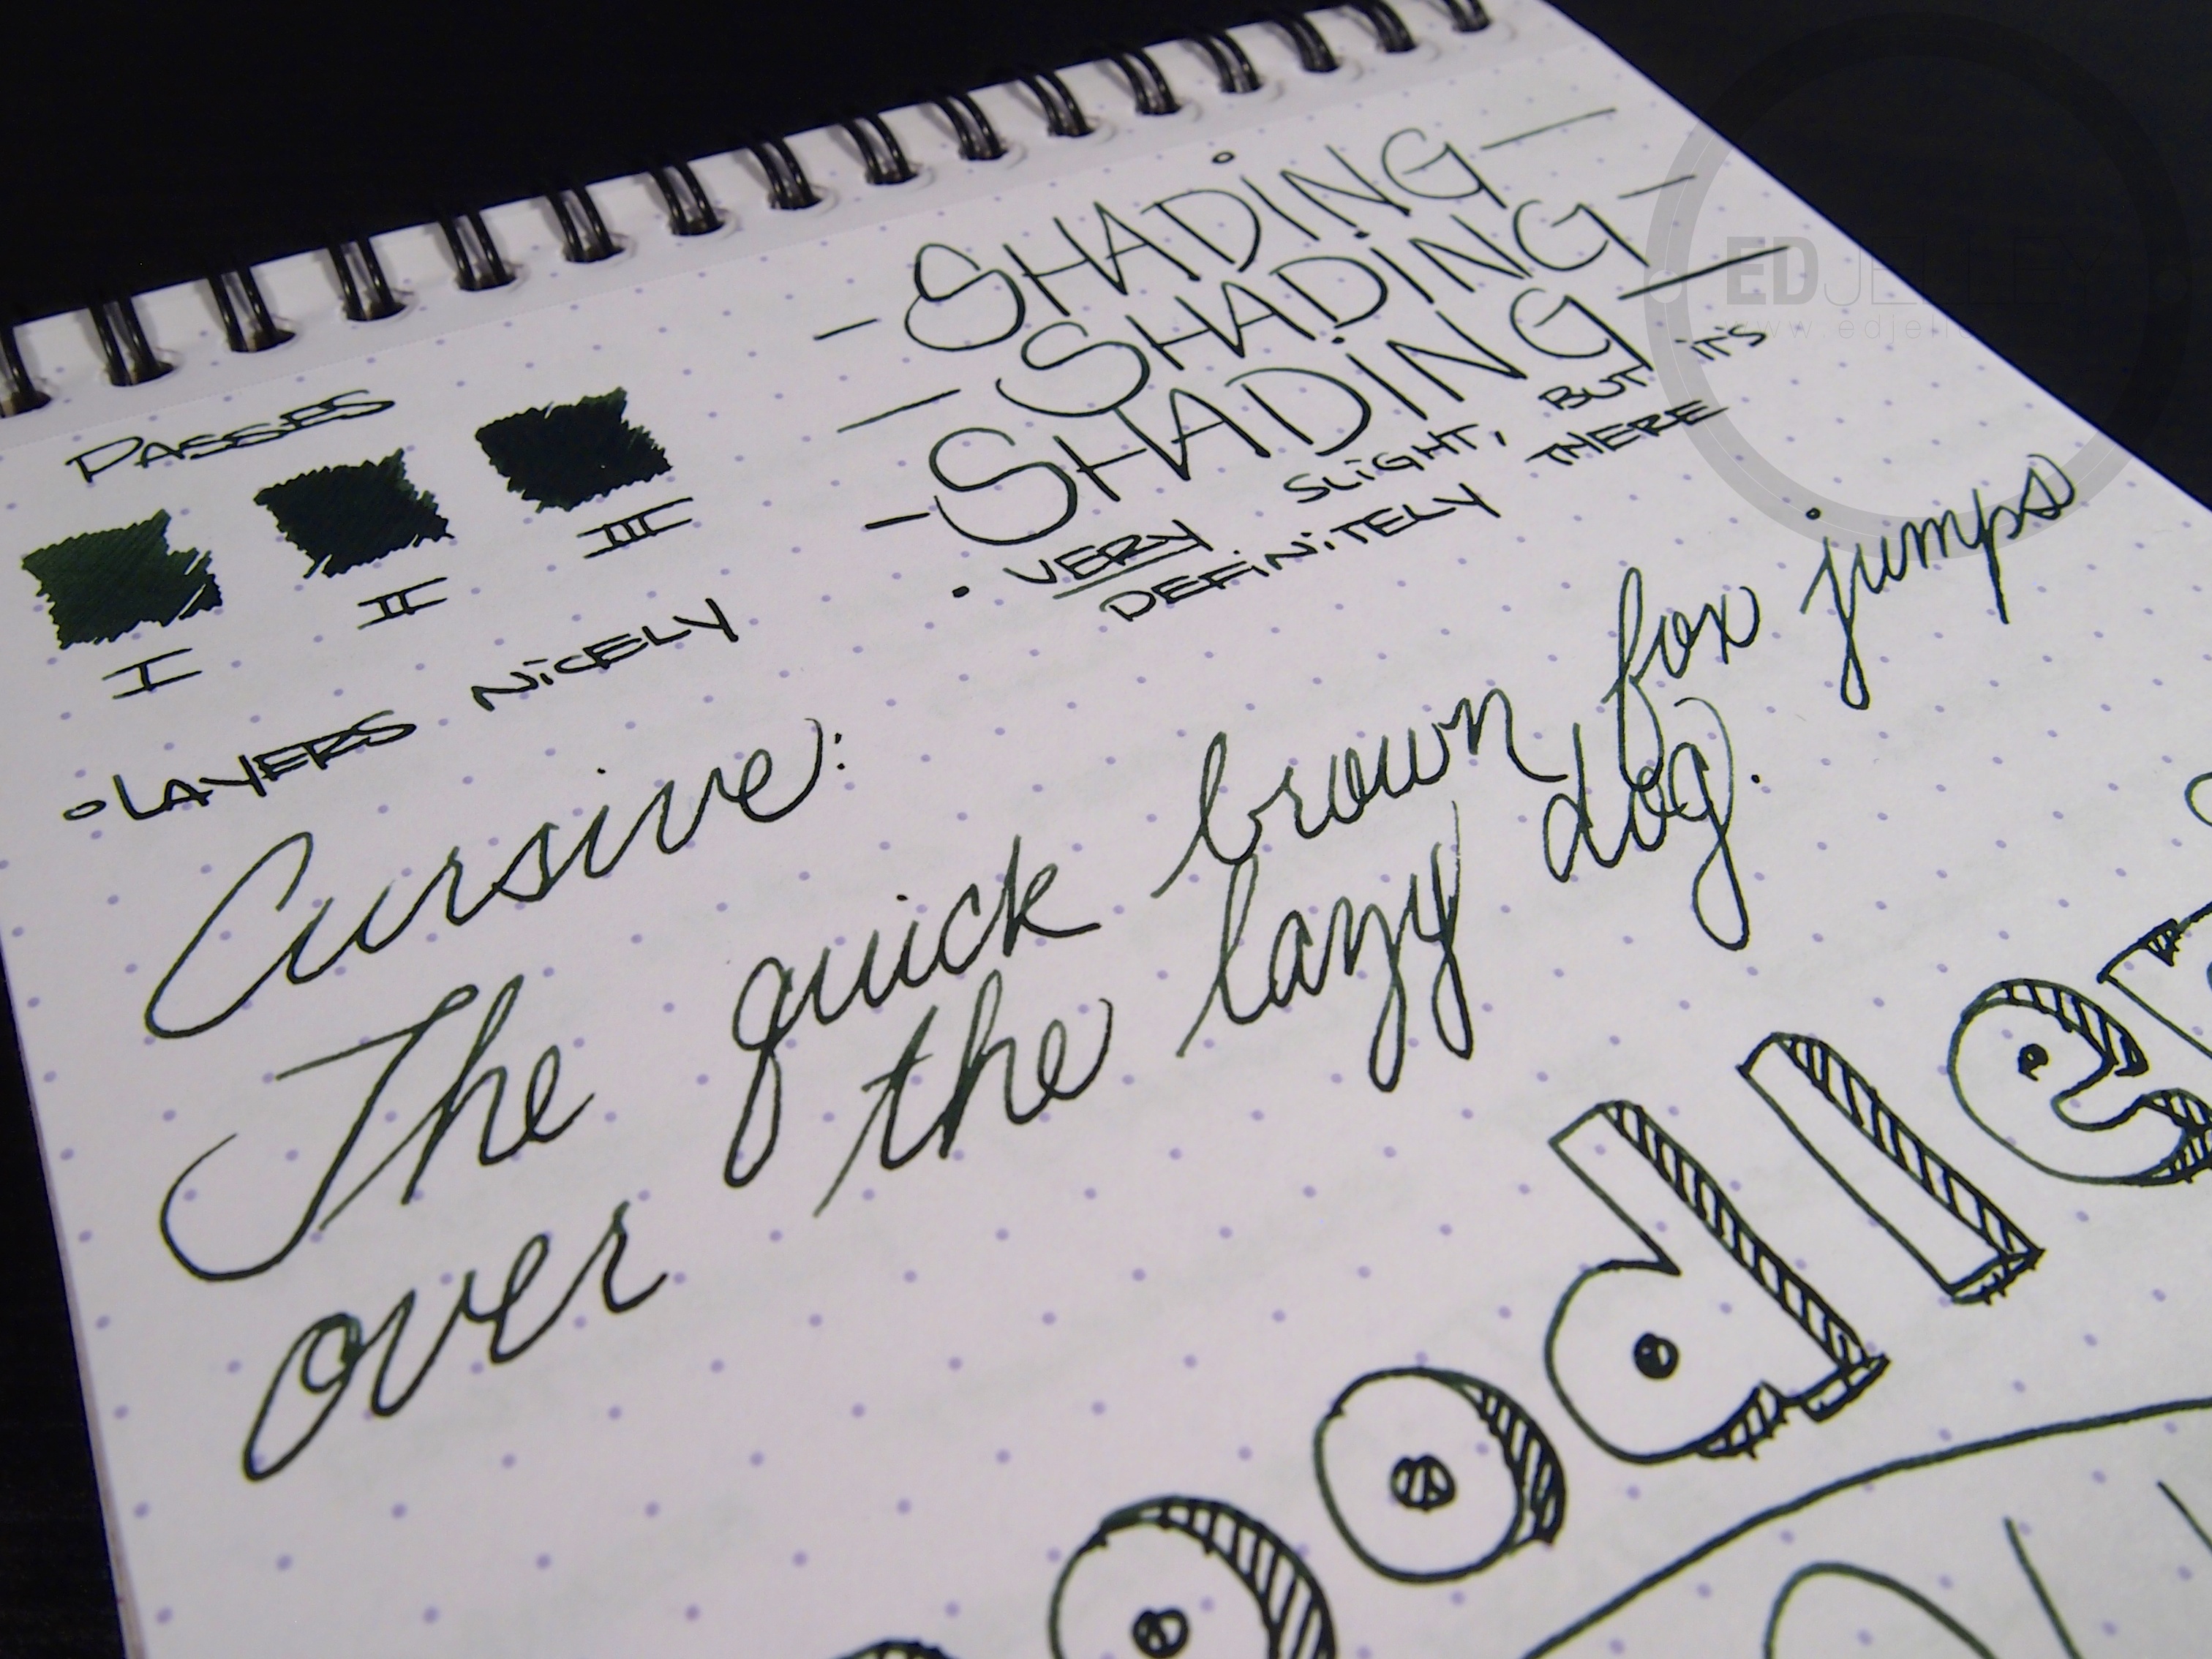 PASSES
I
II
III
• LAYERS NICELY
- SHADING -
- SHADING -
- SHADING -
• VERY SLIGHT, BUT IT'S
DEFINITELY THERE
Cursive:
The quick brown fox jumps
over the lazy dog.
EDJELLEY